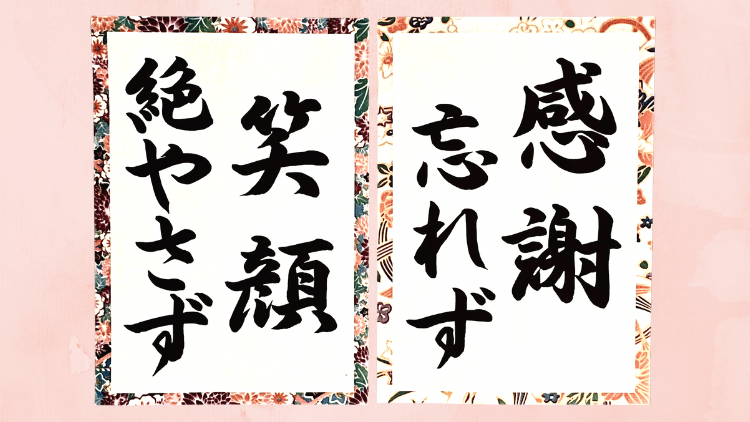 感謝
忘れず
笑顔
絶やさず